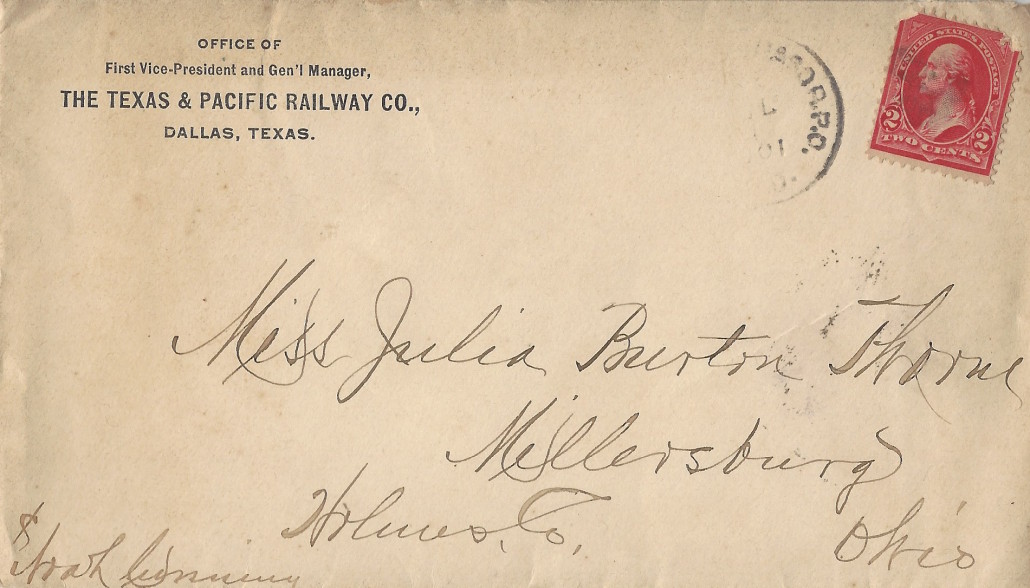 OFFICE OF
First Vice-President and Gen'l Manager,
THE TEXAS & PACIFIC RAILWAY CO.,
DALLAS, TEXAS.
R.P.O.
01
UNITED STATES POSTAGE
2 2
TWO CENTS
Miss Julia Burton Thorne
Millersburg
Holmes, Co,
Ohio